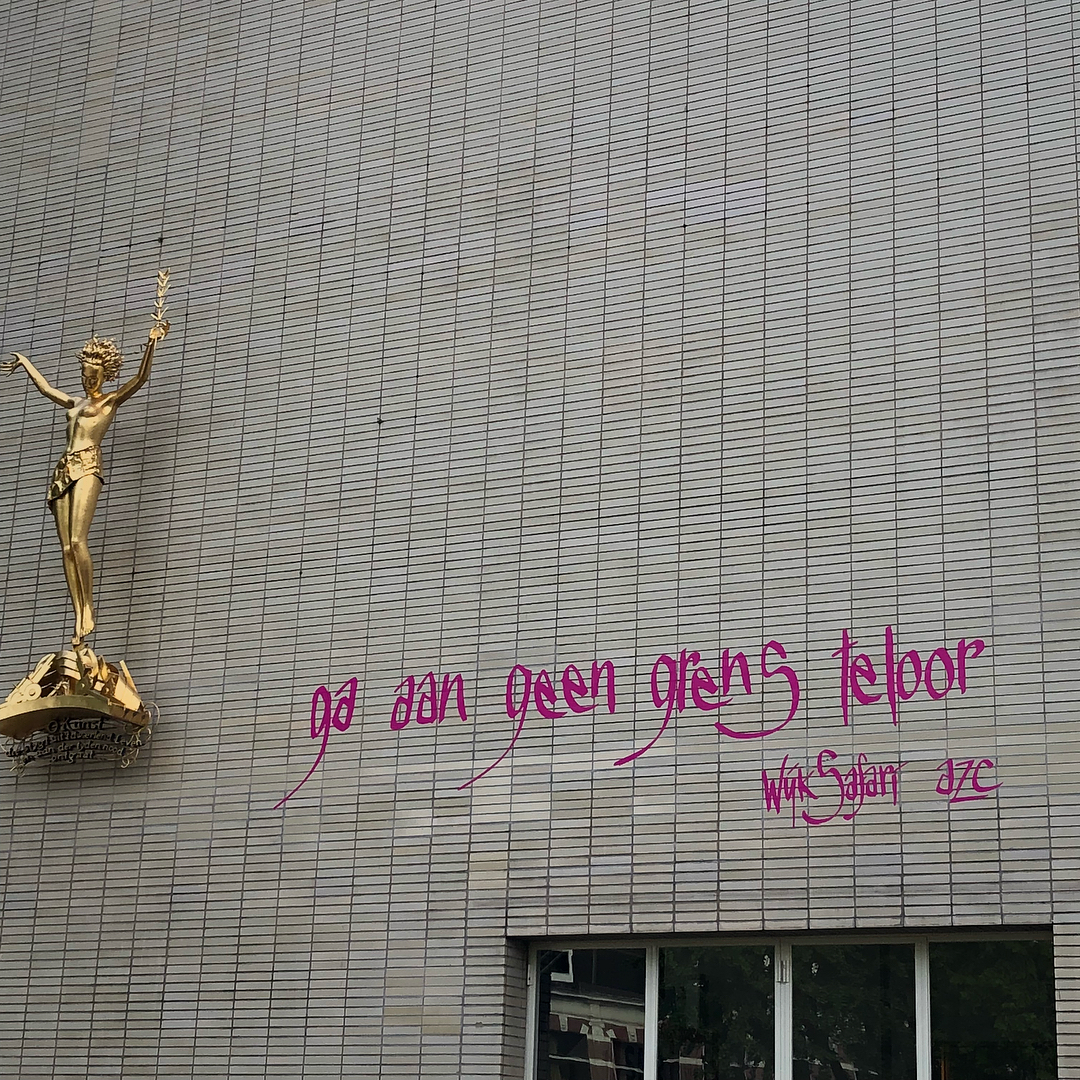 ga aan geen grens teloor
WijkSafari azc
Kunst